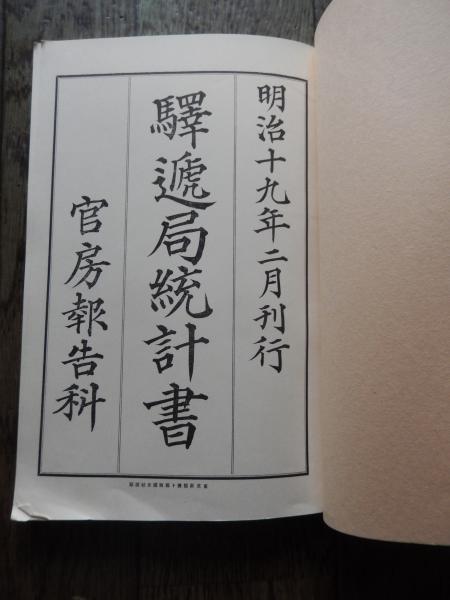 明治十九年二月刊行
驛遞局統計書
官房報告科